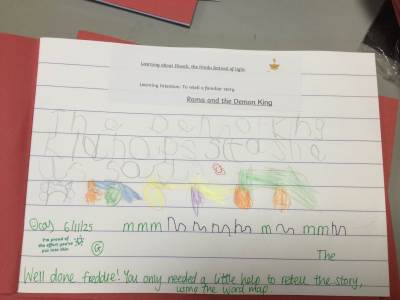 Learning about Diwali, the Hindu festival of light.
Learning Intention: To retell a familiar story.
Rama and the Demon King
The Demon king
kidnaps sita she
is sad.
6/11/25 mmm m mm
I'm proud of
the effort you've
put into this
The
Well done Freddie! You only needed a little help to retell the story,
using the word map.